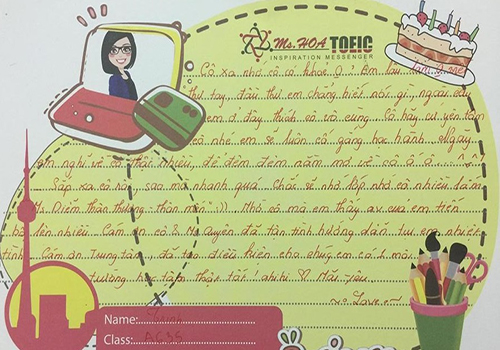 Ms. HOA TOEIC
INSPIRATION MESSENGER
Cô xa nhớ cô có khoẻ
thư tay, đầu thư em chẳng biết nói gì, ngoài
em ở đây thích cô vô cùng. Cô hãy cứ yên tâm
cô nhé em sẽ luôn cố gắng học hành. Ngày
em nghĩ về cô thật nhiều, để đêm đêm nằm mơ về cô
Sắp xa cô rồi, sao mà nhanh quá. Chắc sẽ nhớ lớp nhớ cô nhiều lắm
Ms. Diễm thân thương thân mến :)). Nhờ cô mà em thấy av của em tiến
bộ lên nhiều. Cảm ơn cô & Ms Quyên đã tận tình hướng dẫn tụi em nhiệt
tình. Cảm ơn Trung tâm đã tạo điều kiện cho chúng em có 1 môi
trường học tập thật tốt! ahihi ♡ Mãi yêu
Love
Name: Trinh
Class: